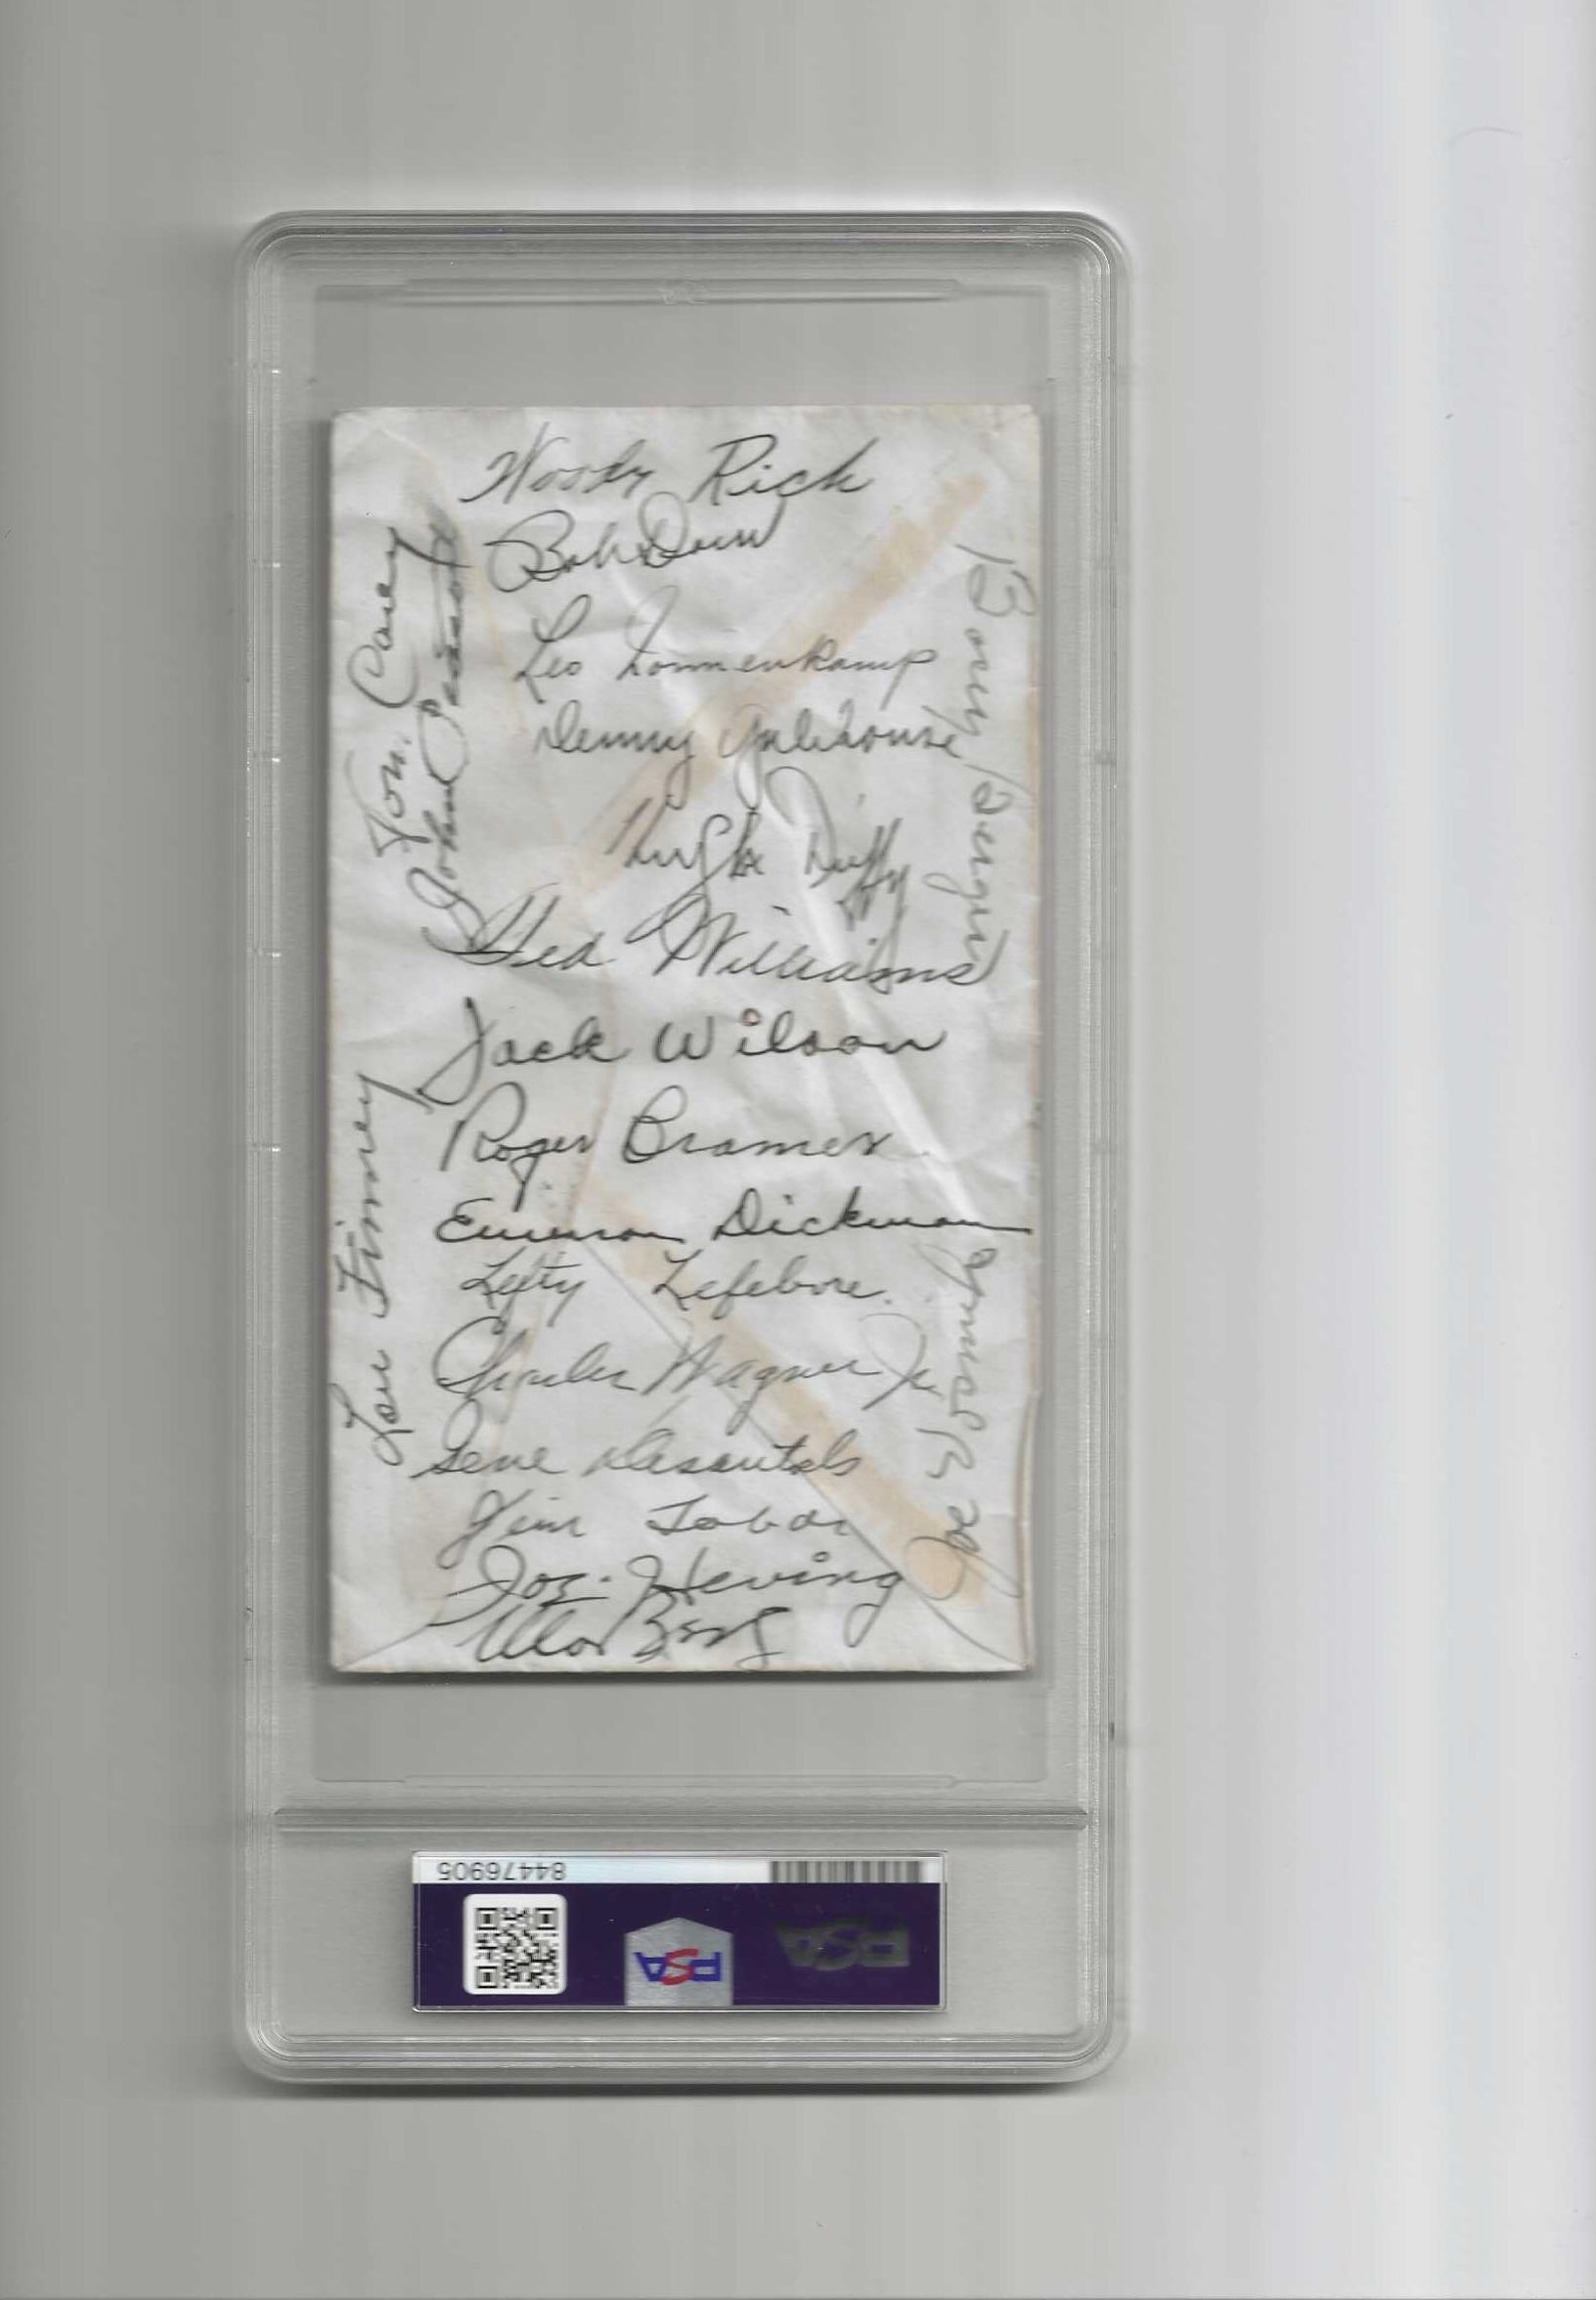 Woody Rick
Bob Doerr
Leo Nonnenkamp
Denny Galehouse
Hugh Duffy
Ted Williams
Jack Wilson
Roger Cramer
Emerson Dickman
Lefty Lefebvre.
Charles Wagner Jr.
Gene Desautels
Jim Tabor
Joe. Heving
Moe Berg
Tom. Carey
John Peasoft
Lou Finney
Boze Berger
Joe Vosmik
84476905
PSA
PSA